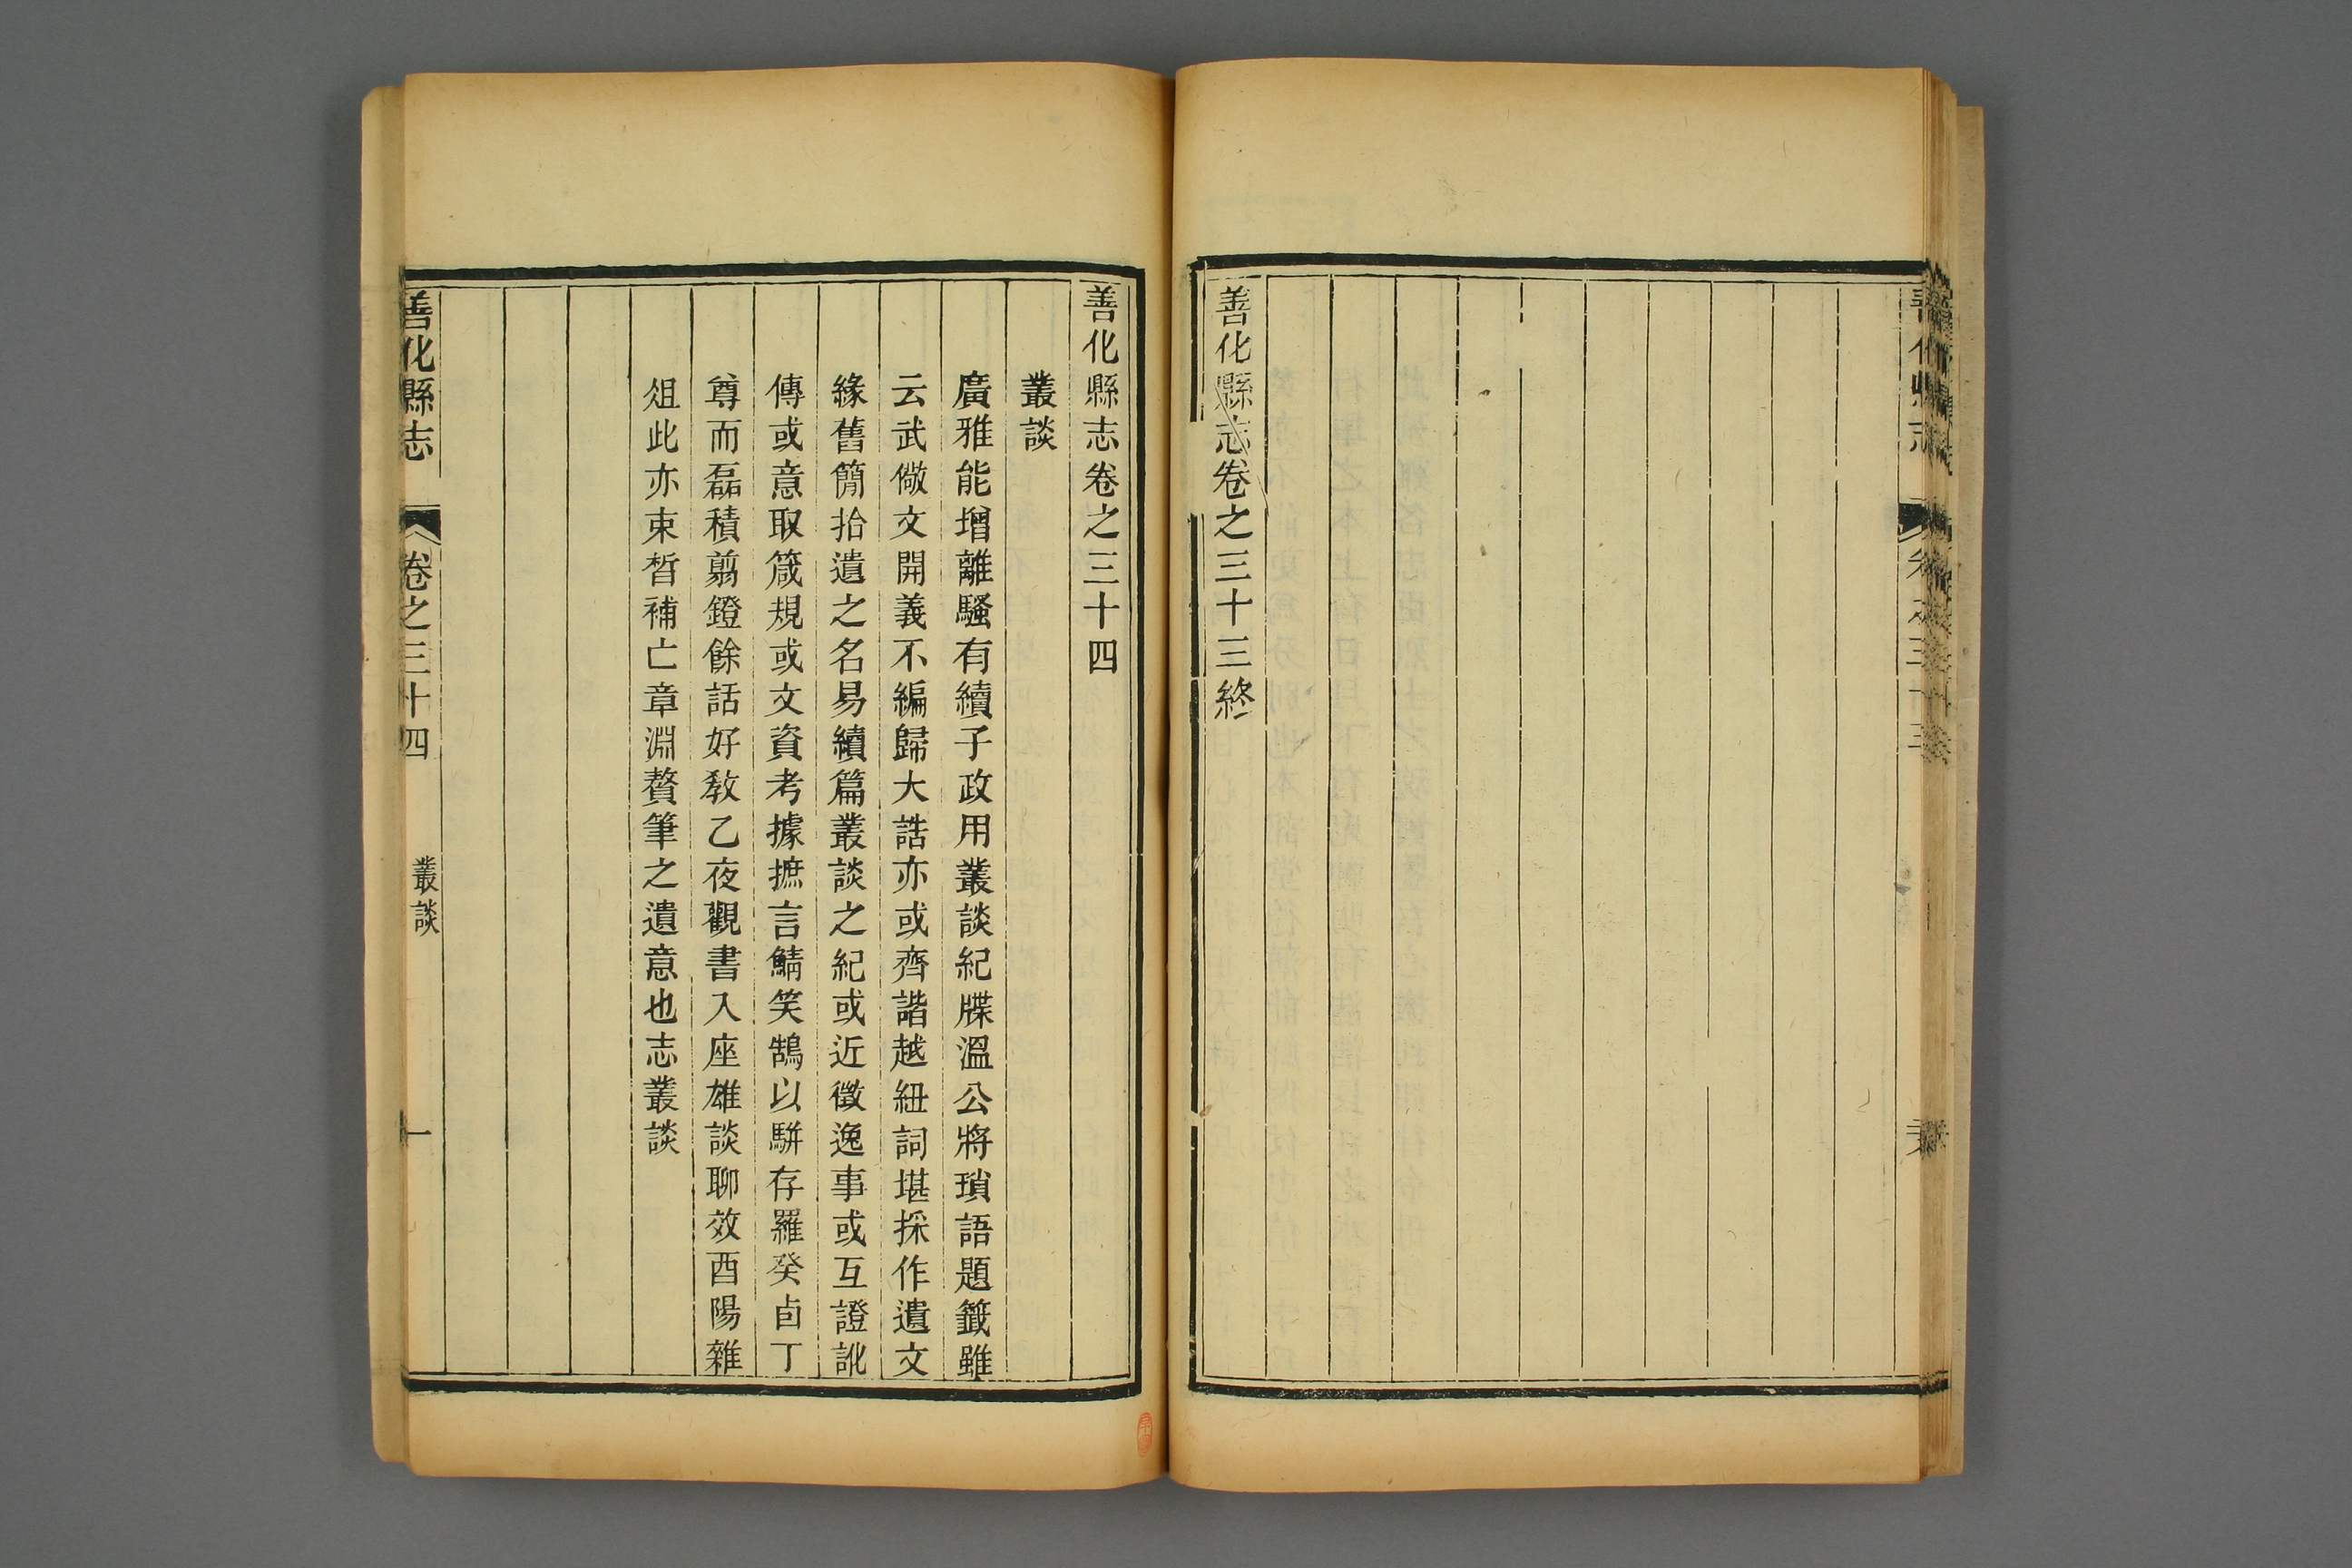 善化縣志卷之三十三終
善化縣志卷之三十四
叢談
廣雅能增離騷有續子政用叢談紀牒溫公將瑣語題籤雖
云武儆文開義不編歸大誥亦或齊諧越紐詞堪採作遺文
緣舊簡拾遺之名易續篇叢談之紀或近徵逸事或互證訛
傳或意取箴規或文資考據摭言鯖笑鵠以駢存羅癸卣丁
尊而磊積剪鐙餘話好敎乙夜觀書入座雄談聊效酉陽雜
俎此亦束晳補亡章淵贅筆之遺意也志叢談
善化縣志
卷之三十四
叢談
一